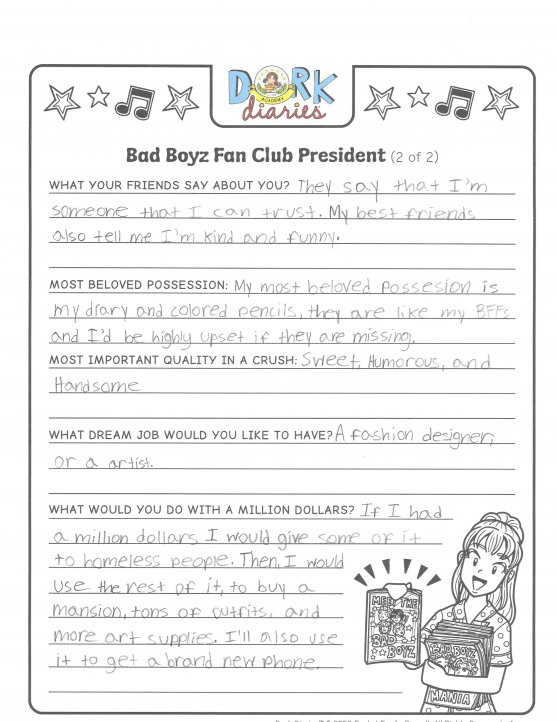 DORK
ACADEMY
diaries
Bad Boyz Fan Club President (2 of 2)
WHAT YOUR FRIENDS SAY ABOUT YOU? They say that I'm
someone that I can trust. My best friends
also tell me I'm kind and funny.
MOST BELOVED POSSESSION: My most beloved possesion is
my diary and colored pencils, they are like my BFFs
and I'd be highly upset if they are missing.
MOST IMPORTANT QUALITY IN A CRUSH: Sweet, Humorous, and
Handsome
WHAT DREAM JOB WOULD YOU LIKE TO HAVE? A fashion designer,
or a artist.
WHAT WOULD YOU DO WITH A MILLION DOLLARS? If I had
a million dollars, I would give some of it
to homeless people. Then, I would
use the rest of it, to buy a
mansion, tons of outfits, and
more art supplies. I'll also use
it to get a brand new phone.
MEET THE
BAD
BOYZ
BAD BOYZ
MANIA